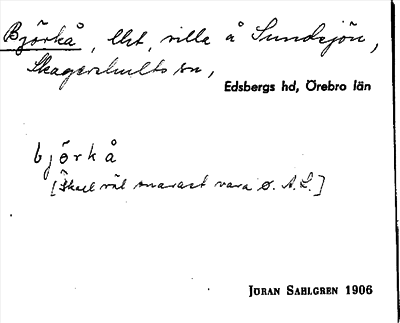 Björkå, lht, villa å Sundsjön,
Skagershults sn,
Edsbergs hd, Örebro län
björkå
[Skall väl snarast vara ø. A.L.]
JÖRAN SAHLGREN 1906